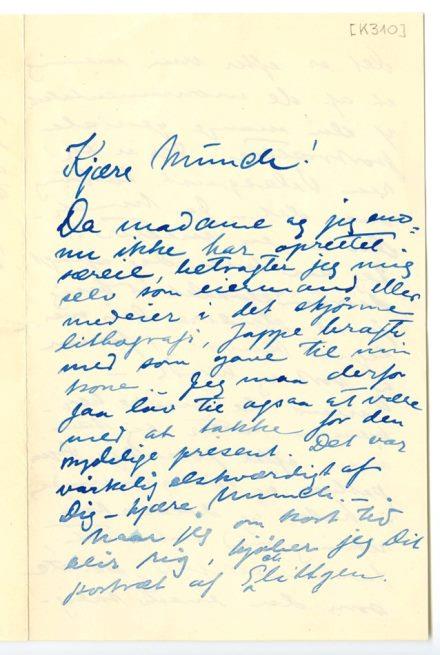 [K310]
Kjære Münch!
Da madame og jeg end=
nu ikke har oprettet
særeie, betragter jeg mig
selv som eiermand eller
medeier i det skjønne
lithografi, Jappe bragte
med som gave til min
kone. – Jeg maa derfor
faa lov til ogsaa at være
med at takke for den
nydelige present. Det var
virkelig elskværdigt af
Dig – kjære Munch. –
Naar jeg om kort tid
blir rig, kjøber jeg Dit
portræt af